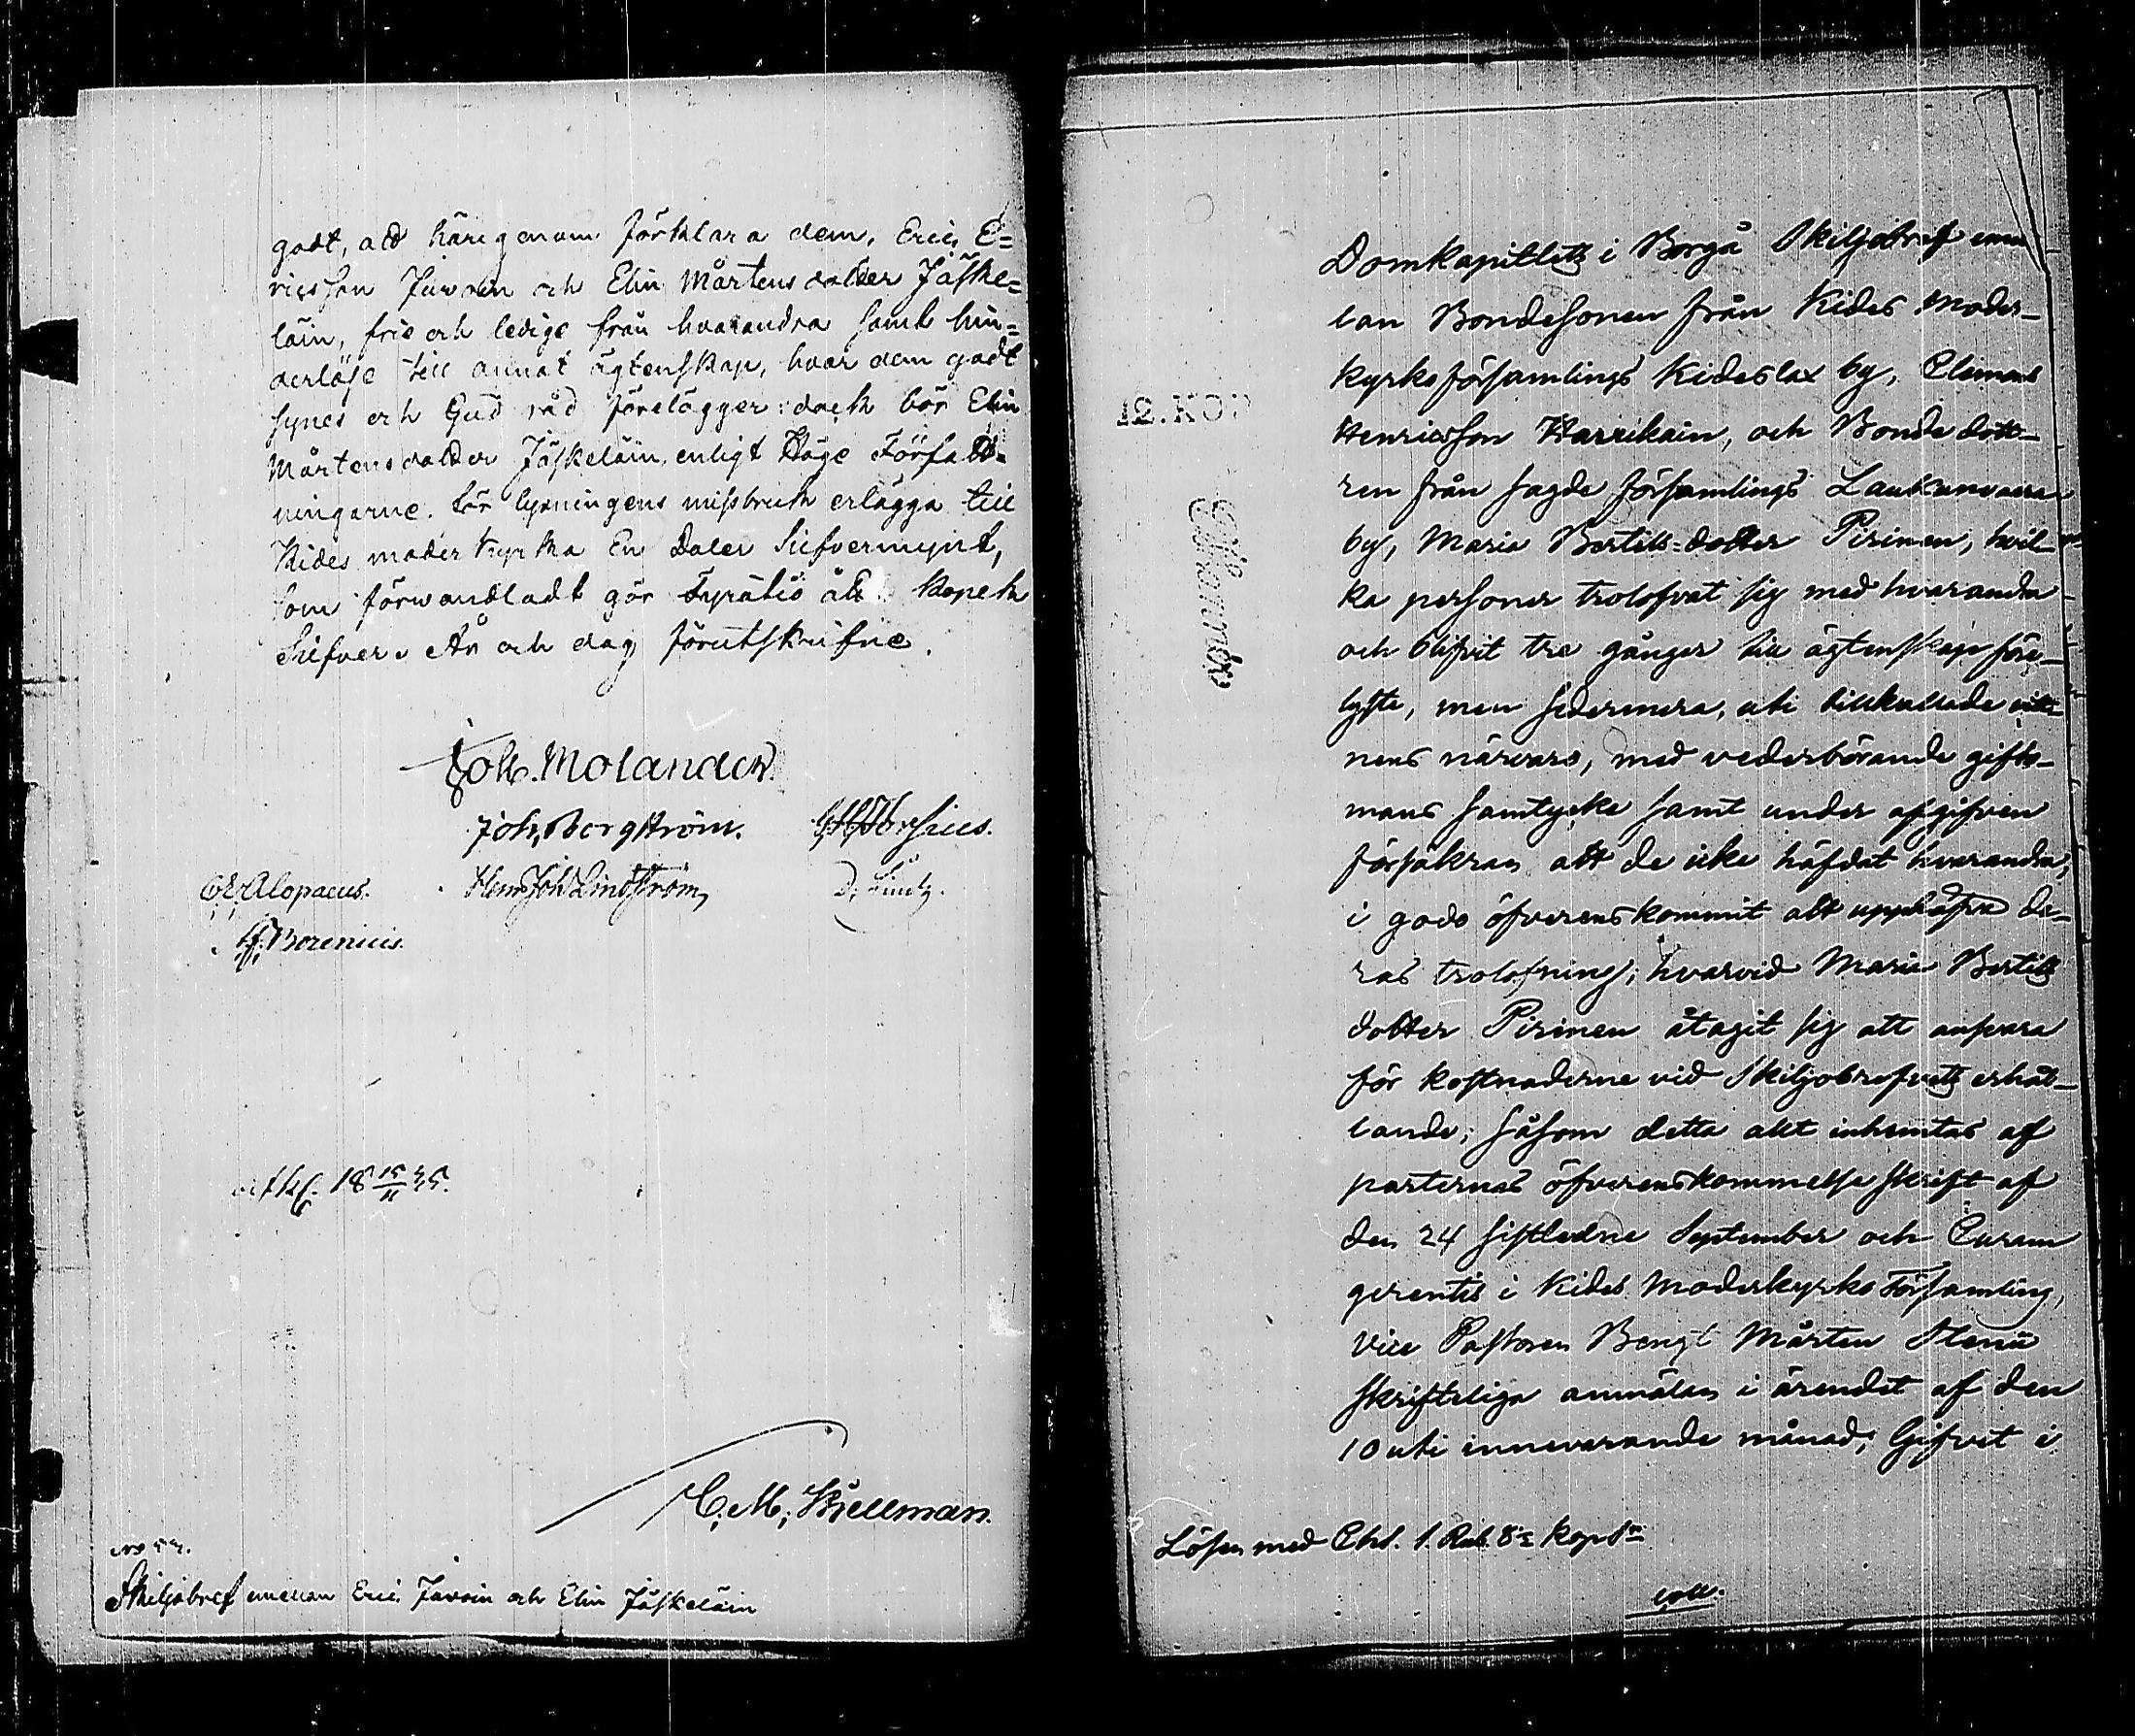 godt, att härigenom förklara dem, Eric E=
ricsson Javain och Elin Mårtensdotter Jäske=
läin, frie och ledige från hvarandra samt hin=
derlöse till annat ägtenskap, hvar dem godt
synes och Gud råd förelägger: dock bör Elin
Mårtensdotter Jäskeläin, enligt Höge Författ=
ningarne, för lysningens missbruk erlägga till
Kides moderkyrka En Daler Silfvermynt,
som förvandladt gör Fyratio åtta Kopek
Silfver. År och dag förutskrifne.
Joh. Molander.
Joh. Borgström.
C. E. Alopaeus.
Henr. Joh. Lindström,
Borenius.
utkf. 18 15/11 35.
C. M. Kjellman.
No 57.
Skiljobref emellan Eric Javain och Elin Jäskeläin
12. KOP
Domkapitlets i Borgå Skiljobref emel
lan Bondesonen från Kides Moder-
kyrkoförsamlings Kideslax by, Clemens
Henricsson Harrikain, och Bondedott-
ren från sagde församlings Laukunvaara
by, Maria Bertils=dotter Pirinen, hvil-
ka personer trolofvat sig med hvarandra
och blifvit tre gånger till ägtenskap före-
lyste, men sedermera, uti tillkallade vitt-
nens närvaro, med vederbörande gifto-
mans samtycke samt under afgifven
försäkran att de icke häfdat hvarandra,
i godo öfverenskommit att upphäfva de-
ras trolofning; hvarvid Maria Bertils
dotter Pirinen åtagit sig att ansvara
för kostnaderne vid Skiljobrefvets erhål-
lande; såsom detta allt inhemtas af
parternas öfverenskommelse skrift af
den 24 sistledne September och Curam
gerentis i Kides Moderkyrko Församling,
Vice Pastoren Bengt Mårten Stenii
skriftliga anmälan i ärendet af den
10 uti innevarande månad; Gifvet i
Lösen med Chl. 1. Rub. 82 Kop. Sr
coll.